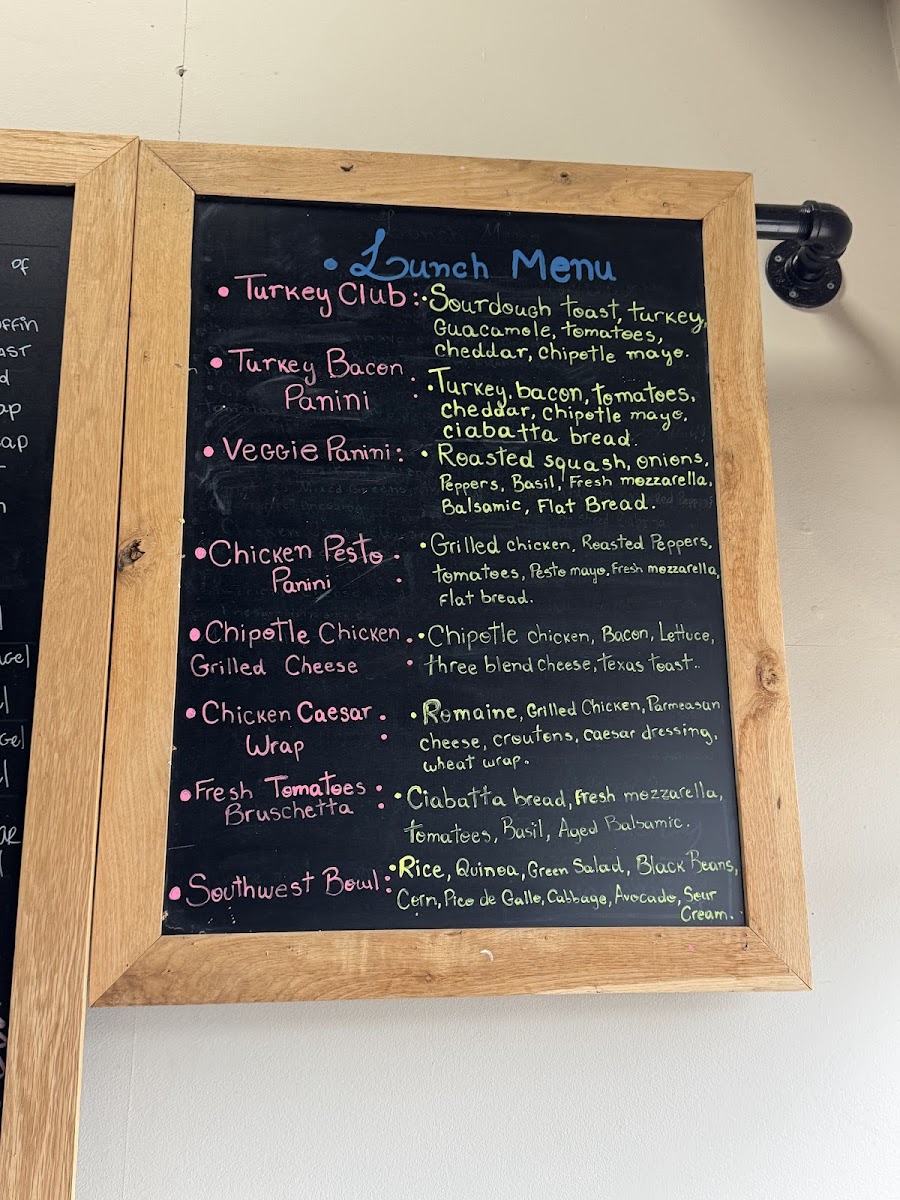 of
Lunch Menu
Turkey Club:
Sourdough toast, turkey,
Guacamole, tomatoes,
cheddar, chipotle mayo.
Turkey Bacon
Panini :
Turkey, bacon, tomatoes,
cheddar, chipotle mayo,
ciabatta bread.
Veggie Panini:
Roasted squash, onions,
Peppers, Basil, Fresh mozzarella,
Balsamic, Flat Bread.
Chicken Pesto :
Panini
Grilled chicken, Roasted Peppers,
tomatoes, Pesto mayo, Fresh mozzarella,
flat bread.
Chipotle Chicken :
Grilled Cheese
Chipotle chicken, Bacon, Lettuce,
three blend cheese, Texas toast.
Chicken Caesar :
Wrap
Romaine, Grilled Chicken, Parmeasan
cheese, croutons, caesar dressing,
wheat wrap.
Fresh Tomatoes :
Bruschetta
Ciabatta bread, fresh mozzarella,
tomatoes, Basil, Aged Balsamic.
Southwest Bowl:
Rice, Quinoa, Green Salad, Black Beans,
Corn, Pico de Gallo, Cabbage, Avocado, Sour
Cream.